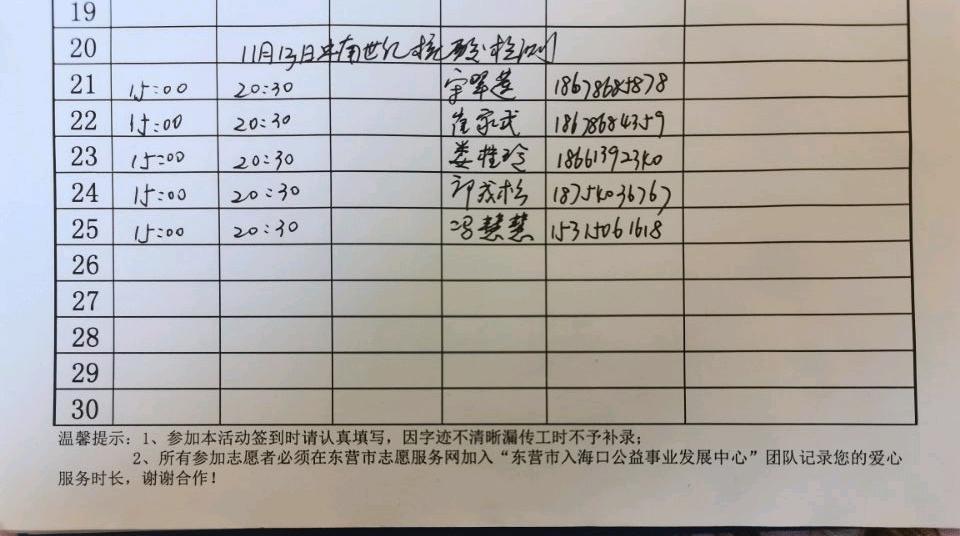 19
20 11月13日中南世纪核酸检测
21 15:00 20:30 18678685878
22 15:00 20:30 崔家武 18678684359
23 15:00 20:30 娄桂玲
24 15:00 20:30
25 15:00 20:30 冯慧慧 15315061618
26
27
28
29
30
温馨提示：1、参加本活动签到时请认真填写，因字迹不清晰漏传工时不予补录；
2、所有参加志愿者必须在东营市志愿服务网加入“东营市入海口公益事业发展中心”团队记录您的爱心
服务时长，谢谢合作！